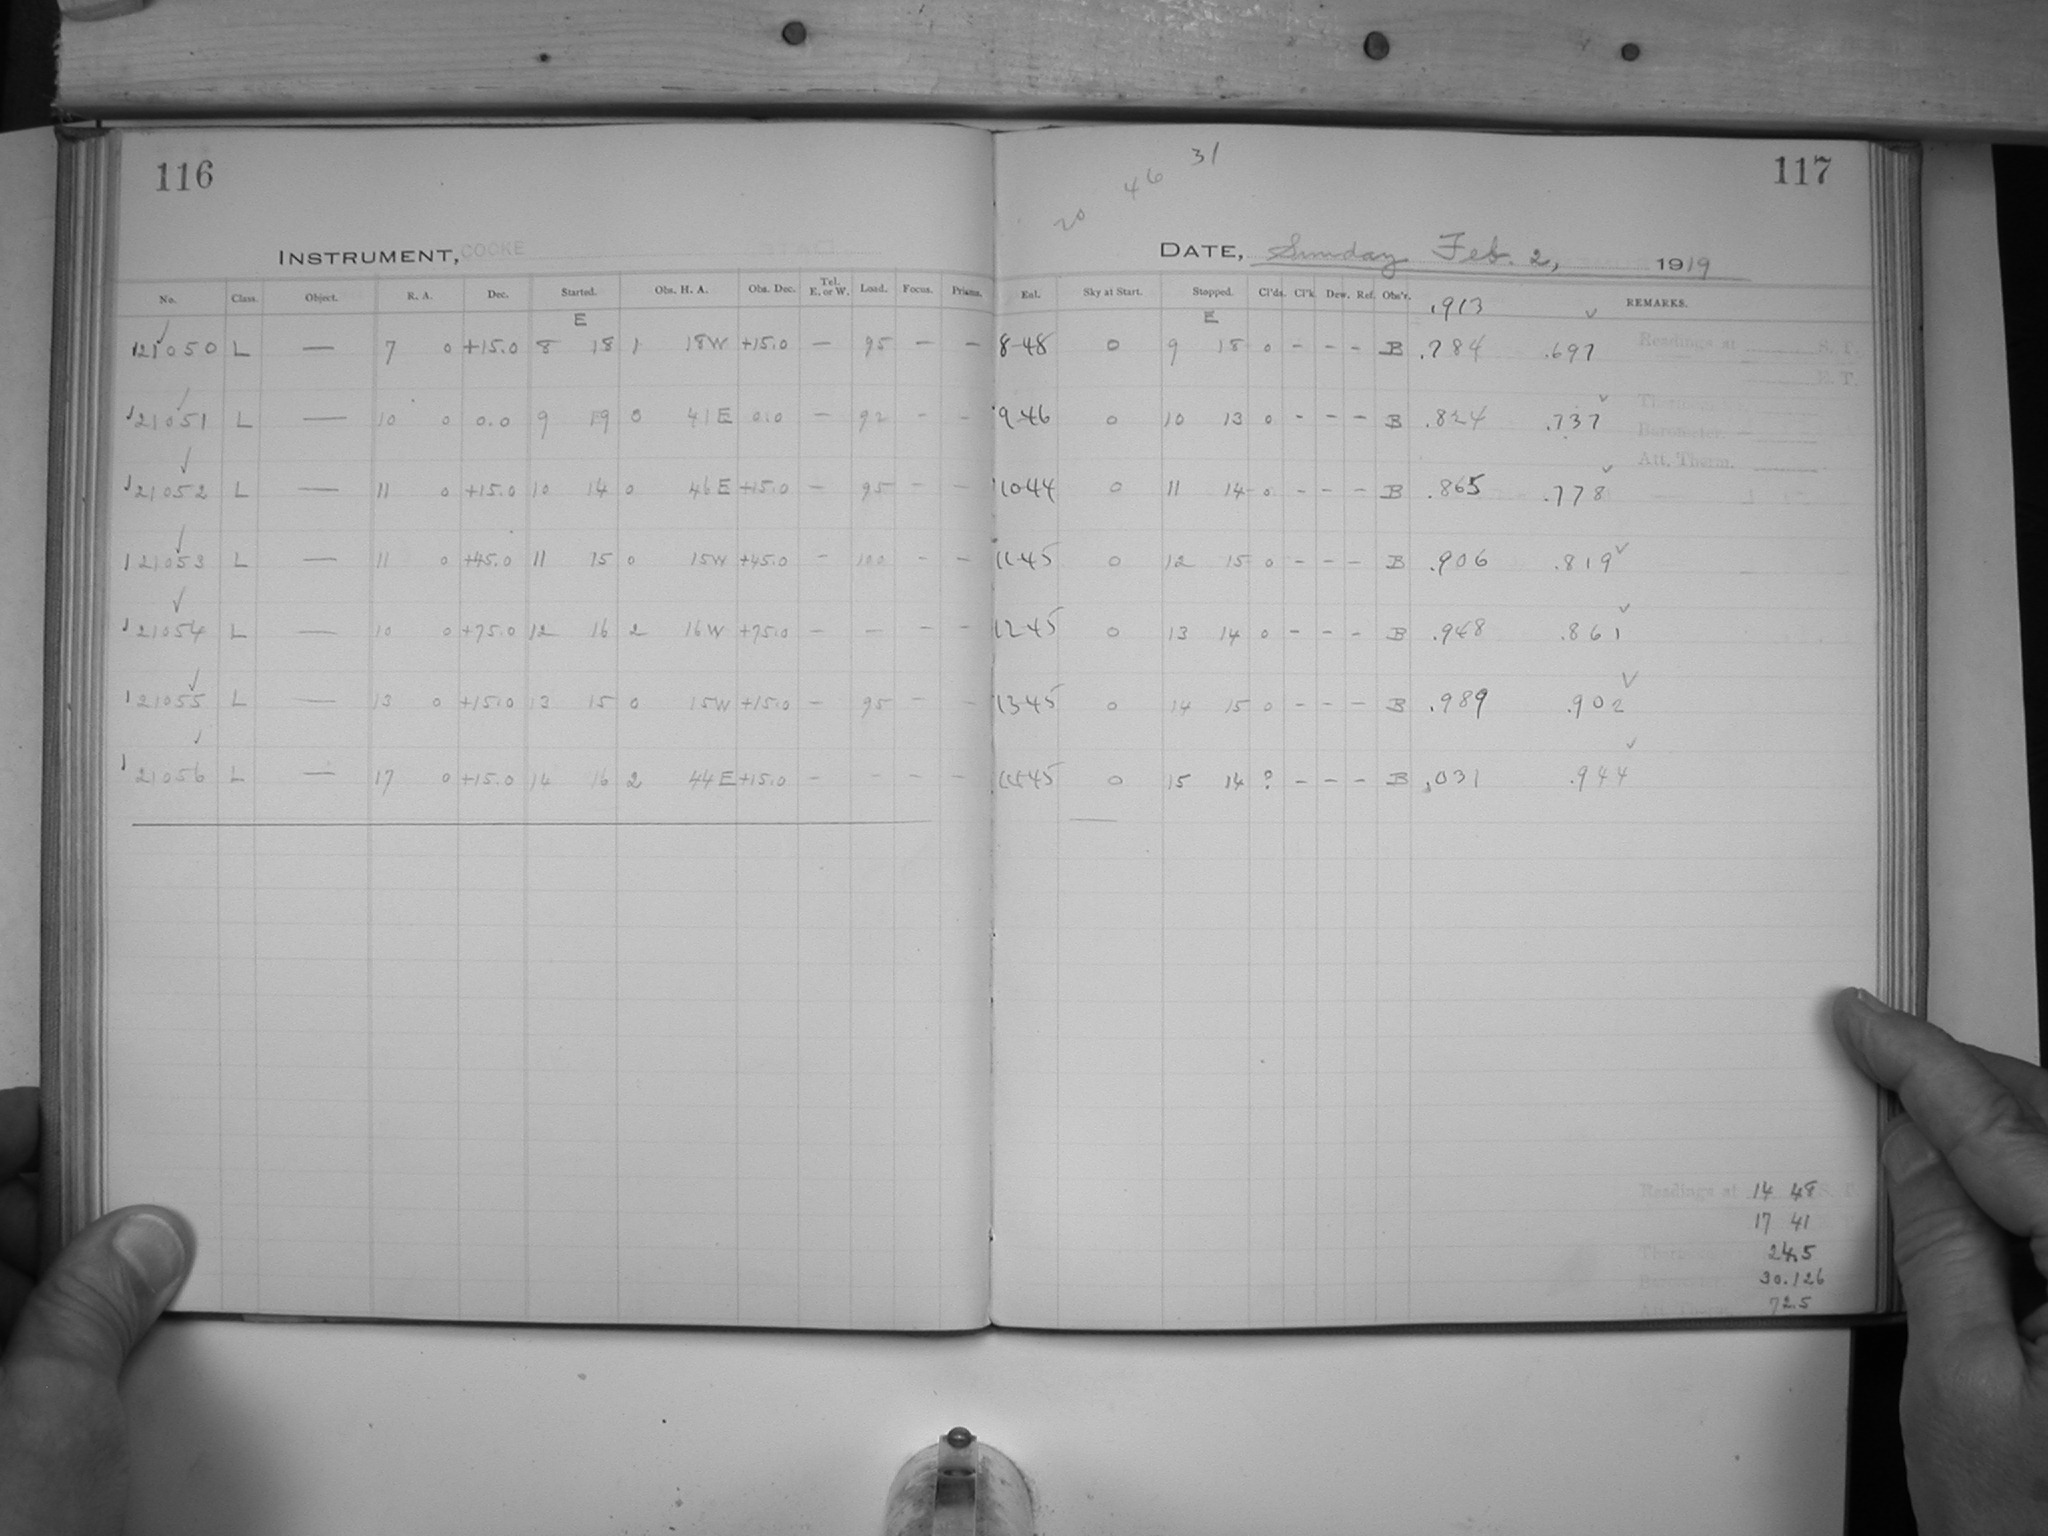 116
INSTRUMENT, COOKE
No. Class. Object. R. A. Dec. Started. Obs. H. A. Obs. Dec. Tel. E. or W. Load. Focus. Prisms.
E
21050 L — 7 0 +15.0 8 18 1 18W +15.0 — 95 — —
21051 L — 10 0 0.0 9 19 0 41E 0.0 — 92 — —
21052 L — 11 0 +15.0 10 14 0 46E +15.0 — 95 — —
21053 L — 11 0 +45.0 11 15 0 15W +45.0 — 100 — —
21054 L — 10 0 +75.0 12 16 2 16W +75.0 — — — —
21055 L — 13 0 +15.0 13 15 0 15W +15.0 — 95 — —
21056 L — 17 0 +15.0 14 16 2 44E +15.0 — — — —
31
46
20
117
DATE, Sunday Feb. 2, 1919
Eal. Sky at Start. Stopped. Cl'ds. Cl'k. Dew. Ref. Obs'r. REMARKS.
E .913 ✓
8-48 0 9 18 0 - - - B .784 .697
9-46 0 10 13 0 - - - B .824 .737 ✓
10-44 0 11 14 0 - - - B .865 .778 ✓
11-45 0 12 15 0 - - - B .906 .819 ✓
12-45 0 13 14 0 - - - B .948 .861 ✓
13-45 0 14 15 0 - - - B .989 .902 ✓
14-45 0 15 14 ? - - - B .031 .944 ✓
Readings at S. T.
E. T.
Barometer.
Att. Therm.
Readings at 14 48 S. T.
17 41
24.5
30.126
72.5